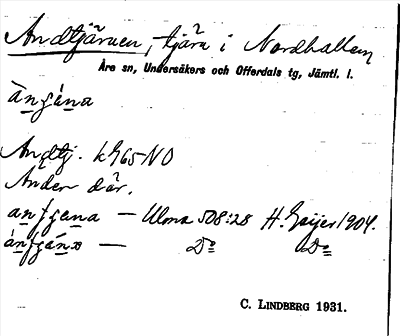 Andtjärnen, tjärn i Nordhallen
Åre sn, Undersåkers och Offerdals tg, Jämtl. l.
Andtj. kG65NO
Änder där.
Ulma 508:28 H. Geijer 1904.
— Do Do
C. LINDBERG 1931.